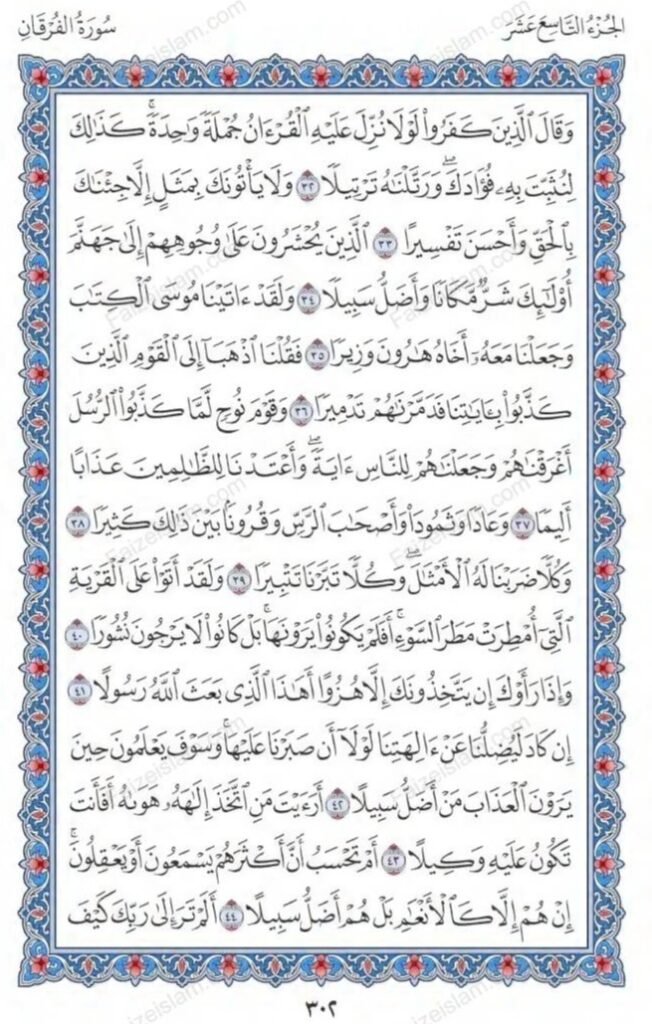 الجُزْءُ التَّاسِعَ عَشَرَ
سُورَةُ الفُرْقَانِ
وَقَالَ ٱلَّذِينَ كَفَرُوا۟ لَوْلَا نُزِّلَ عَلَيْهِ ٱلْقُرْءَانُ جُمْلَةً وَٰحِدَةً ۚ كَذَٰلِكَ
لِنُثَبِّتَ بِهِۦ فُؤَادَكَ ۖ وَرَتَّلْنَٰهُ تَرْتِيلًا ٣٢ وَلَا يَأْتُونَكَ بِمَثَلٍ إِلَّا جِئْنَٰكَ
بِٱلْحَقِّ وَأَحْسَنَ تَفْسِيرًا ٣٣ ٱلَّذِينَ يُحْشَرُونَ عَلَىٰ وُجُوهِهِمْ إِلَىٰ جَهَنَّمَ
أُو۟لَٰٓئِكَ شَرٌّ مَّكَانًا وَأَضَلُّ سَبِيلًا ٣٤ وَلَقَدْ ءَاتَيْنَا مُوسَى ٱلْكِتَٰبَ
وَجَعَلْنَا مَعَهُۥٓ أَخَاهُ هَٰرُونَ وَزِيرًا ٣٥ فَقُلْنَا ٱذْهَبَآ إِلَى ٱلْقَوْمِ ٱلَّذِينَ
كَذَّبُوا۟ بِـَٔايَٰتِنَا فَدَمَّرْنَٰهُمْ تَدْمِيرًا ٣٦ وَقَوْمَ نُوحٍ لَّمَّا كَذَّبُوا۟ ٱلرُّسُلَ
أَغْرَقْنَٰهُمْ وَجَعَلْنَٰهُمْ لِلنَّاسِ ءَايَةً ۖ وَأَعْتَدْنَا لِلظَّٰلِمِينَ عَذَابًا
أَلِيمًا ٣٧ وَعَادًا وَثَمُودَا۟ وَأَصْحَٰبَ ٱلرَّسِّ وَقُرُونًۢا بَيْنَ ذَٰلِكَ كَثِيرًا ٣٨
وَكُلًّا ضَرَبْنَا لَهُ ٱلْأَمْثَٰلَ ۖ وَكُلًّا تَبَّرْنَا تَتْبِيرًا ٣٩ وَلَقَدْ أَتَوْا۟ عَلَى ٱلْقَرْيَةِ
ٱلَّتِىٓ أُمْطِرَتْ مَطَرَ ٱلسَّوْءِ ۚ أَفَلَمْ يَكُونُوا۟ يَرَوْنَهَا ۚ بَلْ كَانُوا۟ لَا يَرْجُونَ نُشُورًا ٤٠
وَإِذَا رَأَوْكَ إِن يَتَّخِذُونَكَ إِلَّا هُزُوًا أَهَٰذَا ٱلَّذِى بَعَثَ ٱللَّهُ رَسُولًا ٤١
إِن كَادَ لَيُضِلُّنَا عَنْ ءَالِهَتِنَا لَوْلَآ أَن صَبَرْنَا عَلَيْهَا ۚ وَسَوْفَ يَعْلَمُونَ حِينَ
يَرَوْنَ ٱلْعَذَابَ مَنْ أَضَلُّ سَبِيلًا ٤٢ أَرَءَيْتَ مَنِ ٱتَّخَذَ إِلَٰهَهُۥ هَوَىٰهُ أَفَأَنتَ
تَكُونُ عَلَيْهِ وَكِيلًا ٤٣ أَمْ تَحْسَبُ أَنَّ أَكْثَرَهُمْ يَسْمَعُونَ أَوْ يَعْقِلُونَ ۚ
إِنْ هُمْ إِلَّا كَٱلْأَنْعَٰمِ بَلْ هُمْ أَضَلُّ سَبِيلًا ٤٤ أَلَمْ تَرَ إِلَىٰ رَبِّكَ كَيْفَ
٣٠٢
Faizeislam.com